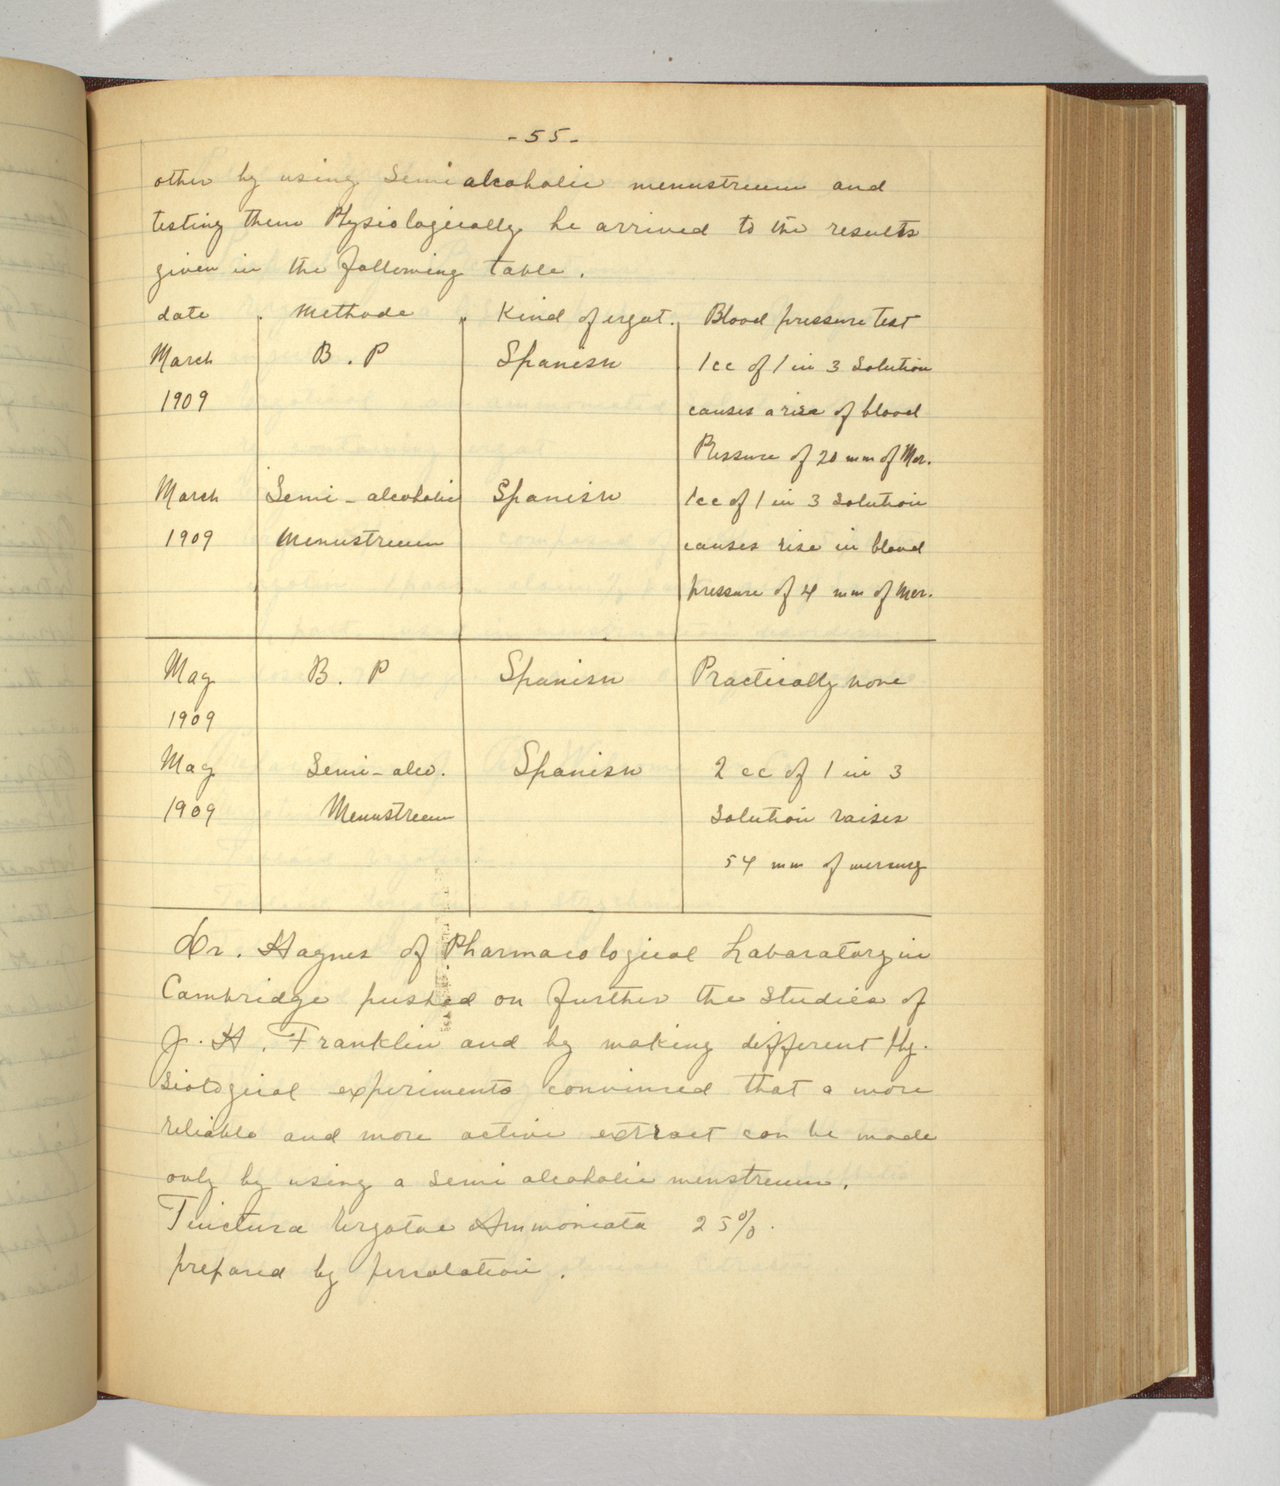 -55-
other by using Semi alcoholic menustreum and
testing them Physiologically he arrived to the results
given in the following table.
date Methode Kind of ergot. Blood pressure test
March B. P Spanish 1cc of 1 in 3 Solution
1909 causes a rise of blood
Pressure of 20 mm of Mer.
March Semi-alcoholic Spanish 1cc of 1 in 3 Solution
1909 Menustreum causes rise in blood
pressure of 4 mm of Mer.
May B. P Spanish Practically none
1909
May Semi-alco. Spanish 2 cc of 1 in 3
1909 Menustreum Solution raises
54 mm of mercury
Dr. Haynes of Pharmacological Labaratory in
Cambridge pushed on further the Studies of
J. H. Franklin and by making different Phy-
siological experiments convinced that a more
reliable and more active extract can be made
only by using a semi alcoholic menstreum.
Tinctura Ergotae Ammoniata 25%.
prepared by percolation.